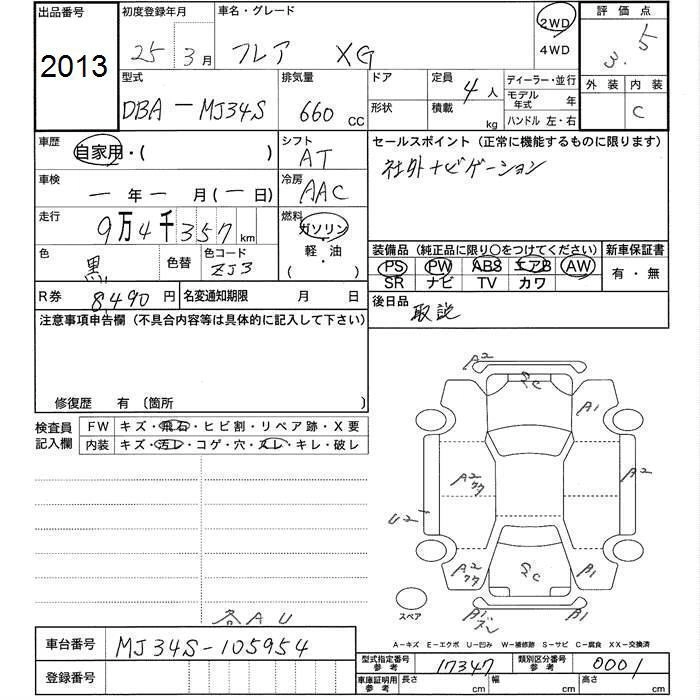 出品番号 初度登録年月 車名・グレード 2WD 評価点
2013 25 3月 フレア XG 4WD 3.5
型式 排気量 ドア 定員 4人 ディーラー・並行 外装 内装
DBA-MJ34S 660 CC 形状 積載 kg モデル年式 年 C
ハンドル 左・右
車歴 自家用・( ) シフト AT セールスポイント(正常に機能するものに限ります)
社外ナビゲーション
車検 一年一月(一日) 冷房 AAC
走行 9万4千357km 燃料 ガソリン
軽・油
( ・ )
色 黒 色替 色コード ZJ3
装備品(純正品に限り○をつけてください) 新車保証書
PS PW ABS エアB AW 有・無
SR ナビ TV カワ
R券 8,490円 名変通知期限 月 日 後日品 取説
注意事項申告欄(不具合内容等は具体的に記入して下さい)
修復歴 有 〔箇所 〕
検査員記入欄 FW キズ・飛石・ヒビ割・リペア跡・X要
内装 キズ・汚レ・コゲ・穴・スレ・キレ・破レ
A2
SC
A1
A2
77
A2
U2
A2
77
SC
B1
スペア
A1
ズレ
B1
各AU
A-キズ E-エクボ U-凹み W-補修跡 S-サビ C-腐食 XX-交換済
車台番号 MJ34S-105954
型式指定番号 参考 17347 類別区分番号 参考 0001
登録番号
車庫証明用 参考 長さ cm 幅 cm 高さ cm